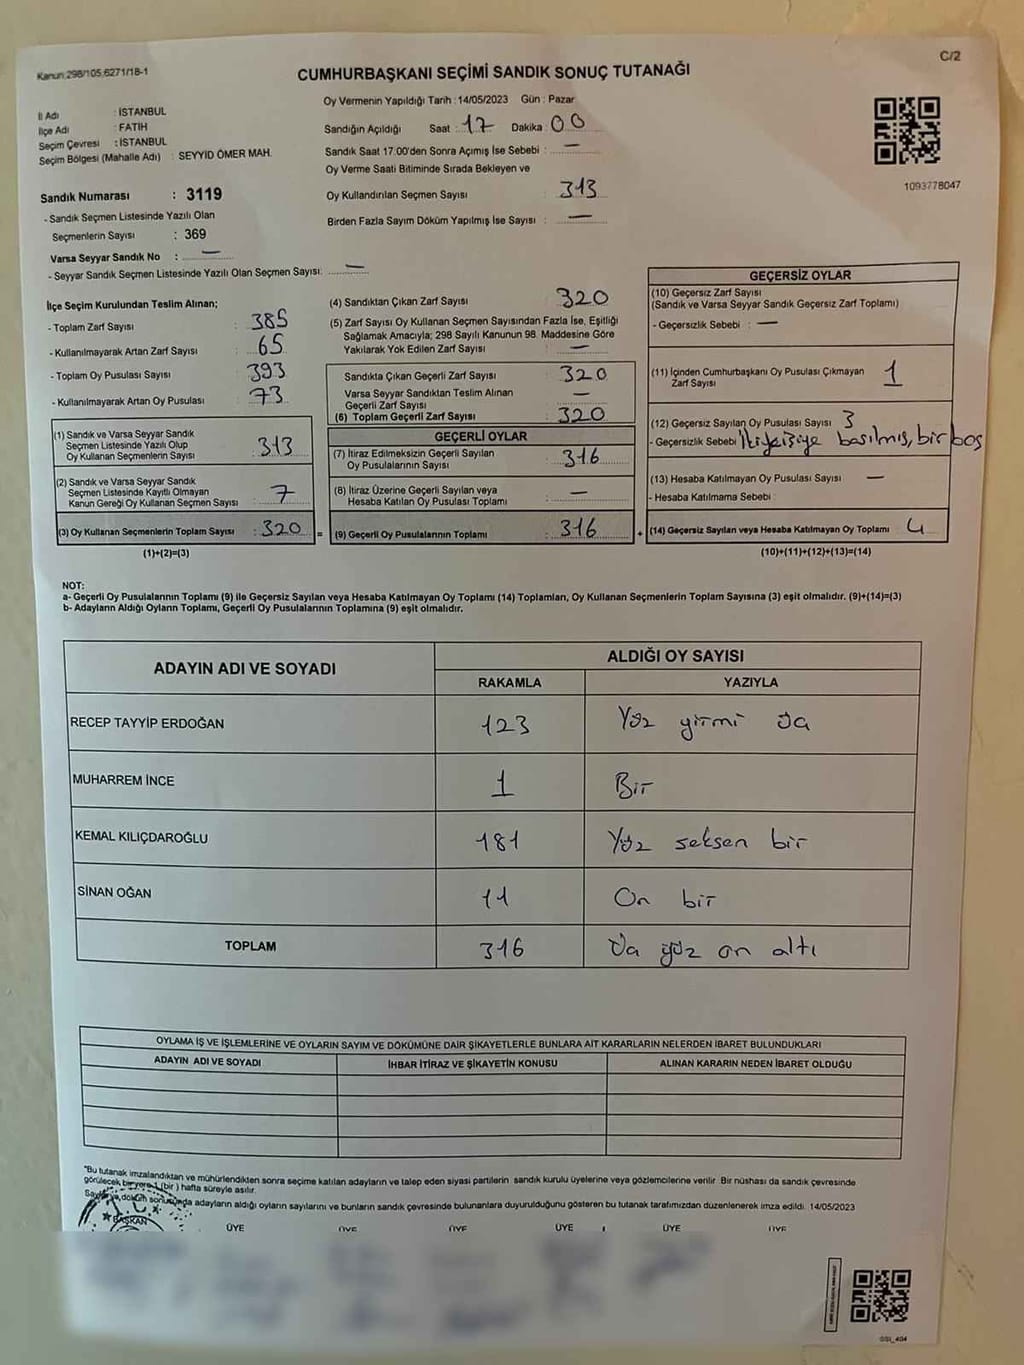 Kanun:298/105,6271/18-1
C/2
CUMHURBAŞKANI SEÇİMİ SANDIK SONUÇ TUTANAĞI
İl Adı : İSTANBUL
İlçe Adı : FATİH
Seçim Çevresi : İSTANBUL
Seçim Bölgesi (Mahalle Adı) : SEYYİD ÖMER MAH.
Sandık Numarası : 3119
- Sandık Seçmen Listesinde Yazılı Olan
Seçmenlerin Sayısı : 369
Varsa Seyyar Sandık No : —
- Seyyar Sandık Seçmen Listesinde Yazılı Olan Seçmen Sayısı: —
Oy Vermenin Yapıldığı Tarih :14/05/2023 Gün : Pazar
Sandığın Açıldığı Saat : 17 Dakika : 00
Sandık Saat 17.00'den Sonra Açımış İse Sebebi : —
Oy Verme Saati Bitiminde Sırada Bekleyen ve
Oy Kullandırılan Seçmen Sayısı : 313
Birden Fazla Sayım Döküm Yapılmış İse Sayısı : —
1093778047
İlçe Seçim Kurulundan Teslim Alınan;
- Toplam Zarf Sayısı : 385
- Kullanılmayarak Artan Zarf Sayısı : 65
- Toplam Oy Pusulası Sayısı : 393
- Kullanılmayarak Artan Oy Pusulası : 73
(1) Sandık ve Varsa Seyyar Sandık
Seçmen Listesinde Yazılı Olup
Oy Kullanan Seçmenlerin Sayısı : 313
(2) Sandık ve Varsa Seyyar Sandık
Seçmen Listesinde Kayıtlı Olmayan
Kanun Gereği Oy Kullanan Seçmen Sayısı : 7
(3) Oy Kullanan Seçmenlerin Toplam Sayısı : 320
(1)+(2)=(3)
(4) Sandıktan Çıkan Zarf Sayısı : 320
(5) Zarf Sayısı Oy Kullanan Seçmen Sayısından Fazla İse, Eşitliği
Sağlamak Amacıyla; 298 Sayılı Kanunun 98. Maddesine Göre
Yakılarak Yok Edilen Zarf Sayısı : —
Sandıkta Çıkan Geçerli Zarf Sayısı : 320
Varsa Seyyar Sandıktan Teslim Alınan
Geçerli Zarf Sayısı : —
(6) Toplam Geçerli Zarf Sayısı : 320
GEÇERLİ OYLAR
(7) İtiraz Edilmeksizin Geçerli Sayılan
Oy Pusulalarının Sayısı : 316
(8) İtiraz Üzerine Geçerli Sayılan veya
Hesaba Katılan Oy Pusulası Toplamı : —
= (9) Geçerli Oy Pusulalarının Toplamı : 316 +
GEÇERSİZ OYLAR
(10) Geçersiz Zarf Sayısı
(Sandık ve Varsa Seyyar Sandık Geçersiz Zarf Toplamı)
- Geçersizlik Sebebi : —
(11) İçinden Cumhurbaşkanı Oy Pusulası Çıkmayan
Zarf Sayısı 1
(12) Geçersiz Sayılan Oy Pusulası Sayısı 3
- Geçersizlik Sebebi : İki kişiye basılmış, bir boş
(13) Hesaba Katılmayan Oy Pusulası Sayısı —
- Hesaba Katılmama Sebebi :
(14) Geçersiz Sayılan veya Hesaba Katılmayan Oy Toplamı 4
(10)+(11)+(12)+(13)=(14)
NOT:
a- Geçerli Oy Pusulalarının Toplamı (9) ile Geçersiz Sayılan veya Hesaba Katılmayan Oy Toplamı (14) Toplamları, Oy Kullanan Seçmenlerin Toplam Sayısına (3) eşit olmalıdır. (9)+(14)=(3)
b- Adayların Aldığı Oyların Toplamı, Geçerli Oy Pusulalarının Toplamına (9) eşit olmalıdır.
ADAYIN ADI VE SOYADI
ALDIĞI OY SAYISI
RAKAMLA YAZIYLA
RECEP TAYYİP ERDOĞAN 123 Yüz yirmi üç
MUHARREM İNCE 1 Bir
KEMAL KILIÇDAROĞLU 181 Yüz seksen bir
SİNAN OĞAN 11 On bir
TOPLAM 316 Üç yüz on altı
OYLAMA İŞ VE İŞLEMLERİNE VE OYLARIN SAYIM VE DÖKÜMÜNE DAİR ŞİKAYETLERLE BUNLARA AİT KARARLARIN NELERDEN İBARET BULUNDUKLARI
ADAYIN ADI VE SOYADI İHBAR İTİRAZ VE ŞİKAYETİN KONUSU ALINAN KARARIN NEDEN İBARET OLDUĞU
"Bu tutanak imzalandıktan ve mühürlendikten sonra seçime katılan adayların ve talep eden siyasi partilerin sandık kurulu üyelerine veya gözlemcilerine verilir. Bir nüshası da sandık çevresinde
görülecek bir yere 1 (bir ) hafta süreyle asılır.
Sayım ve döküm sonucunda adayların aldığı oyların sayılarını ve bunların sandık çevresinde bulunanlara duyurulduğunu gösteren bu tutanak tarafımızdan düzenlenerek imza edildi. 14/05/2023
BAŞKAN ÜYE ÜYE ÜYE ÜYE ÜYE ÜYE